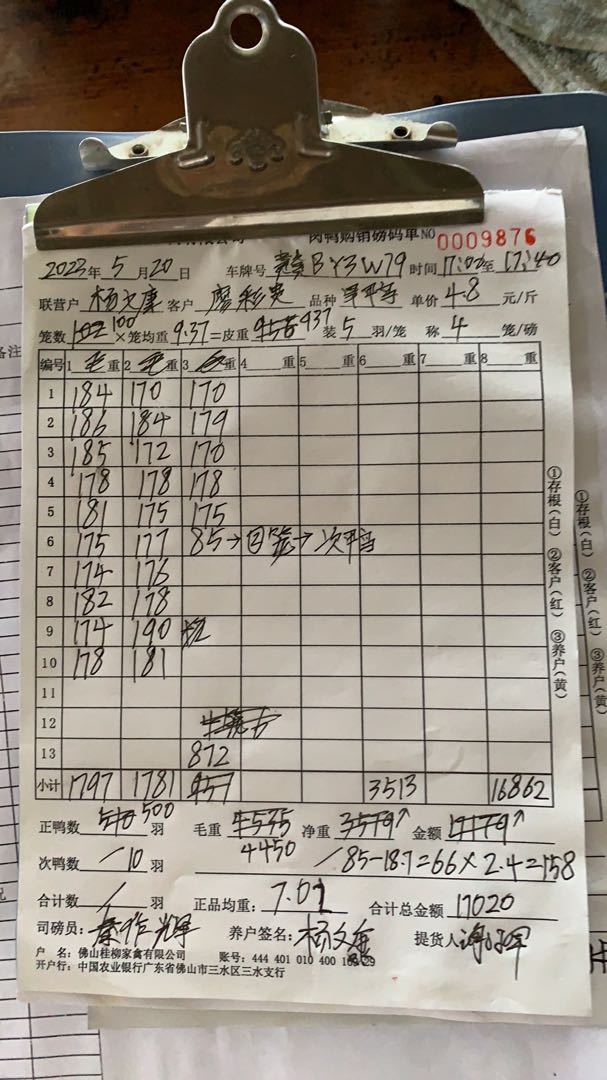 肉鸭购销磅码单NO 0009876
2023年5月20日 车牌号 BY3W79 时间17:00至17:40
联营户 杨文康 客户 廖彩 品种 单价4.8元/斤
笼数 100×笼均重9.37=皮重 937 装5羽/笼 称4笼/磅
编号 1 毛重 2 毛重 3 毛重 4 重 5 重 6 重 7 重 8 重
1 184 170 170
2 186 184 179
3 185 172 170
4 178 178 178
5 181 175 175
6 175 177 85→回笼→次鸭
7 174 176
8 182 178
9 174 190
10 178 181
11
12
13 872
小计 1797 1781 957 3513 16862
正鸭数 500羽 毛重 4535 净重 3579 金额 17179
4450 85-18.7=66×2.4=158
次鸭数 10羽
合计数 羽 正品均重: 7.02 合计总金额 17020
司磅员: 养户签名: 杨文 提货人
户 名: 佛山桂柳家禽有限公司 账号: 444 401 010 400 16
开户行: 中国农业银行广东省佛山市三水区三水支行
①存根(白) ②客户(红) ③养户(黄)
①存根(白) ②客户(红) ③养户(黄)
备注